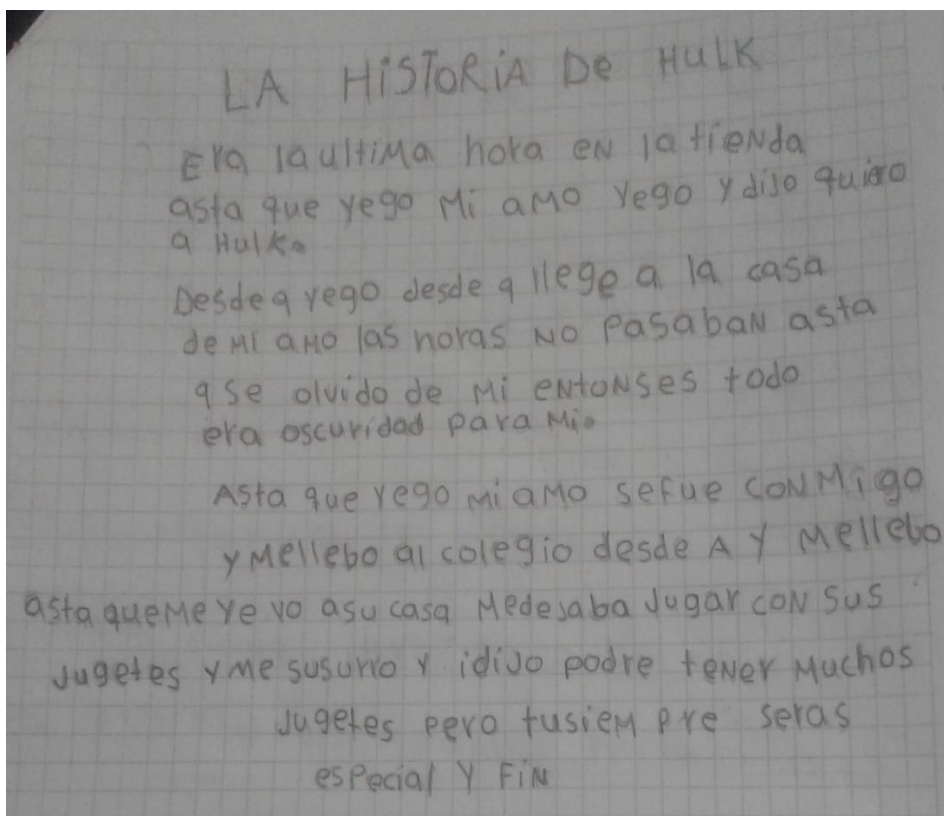 LA HiSTORiA De HULK
Era la ultima hora eN la tieNda
asta que yego Mi aMo Yego y dijo quiero
a Hulk.
Desde q yego desde q llege a la casa
de Mi aMo las horas No PasabaN asta
q se olvido de Mi eNtoNses todo
era oscuridad para Mi.
Asta que Yego Mi aMo sefue coNMigo
y Mellebo al colegio desde A Y Mellebo
asta queMe Ye vo asu casa Medejaba Jugar coN sus
Jugetes y Me susurro Y idiJo podre teNer Muchos
Jugetes pero tusieM pre seras
especial Y FiN